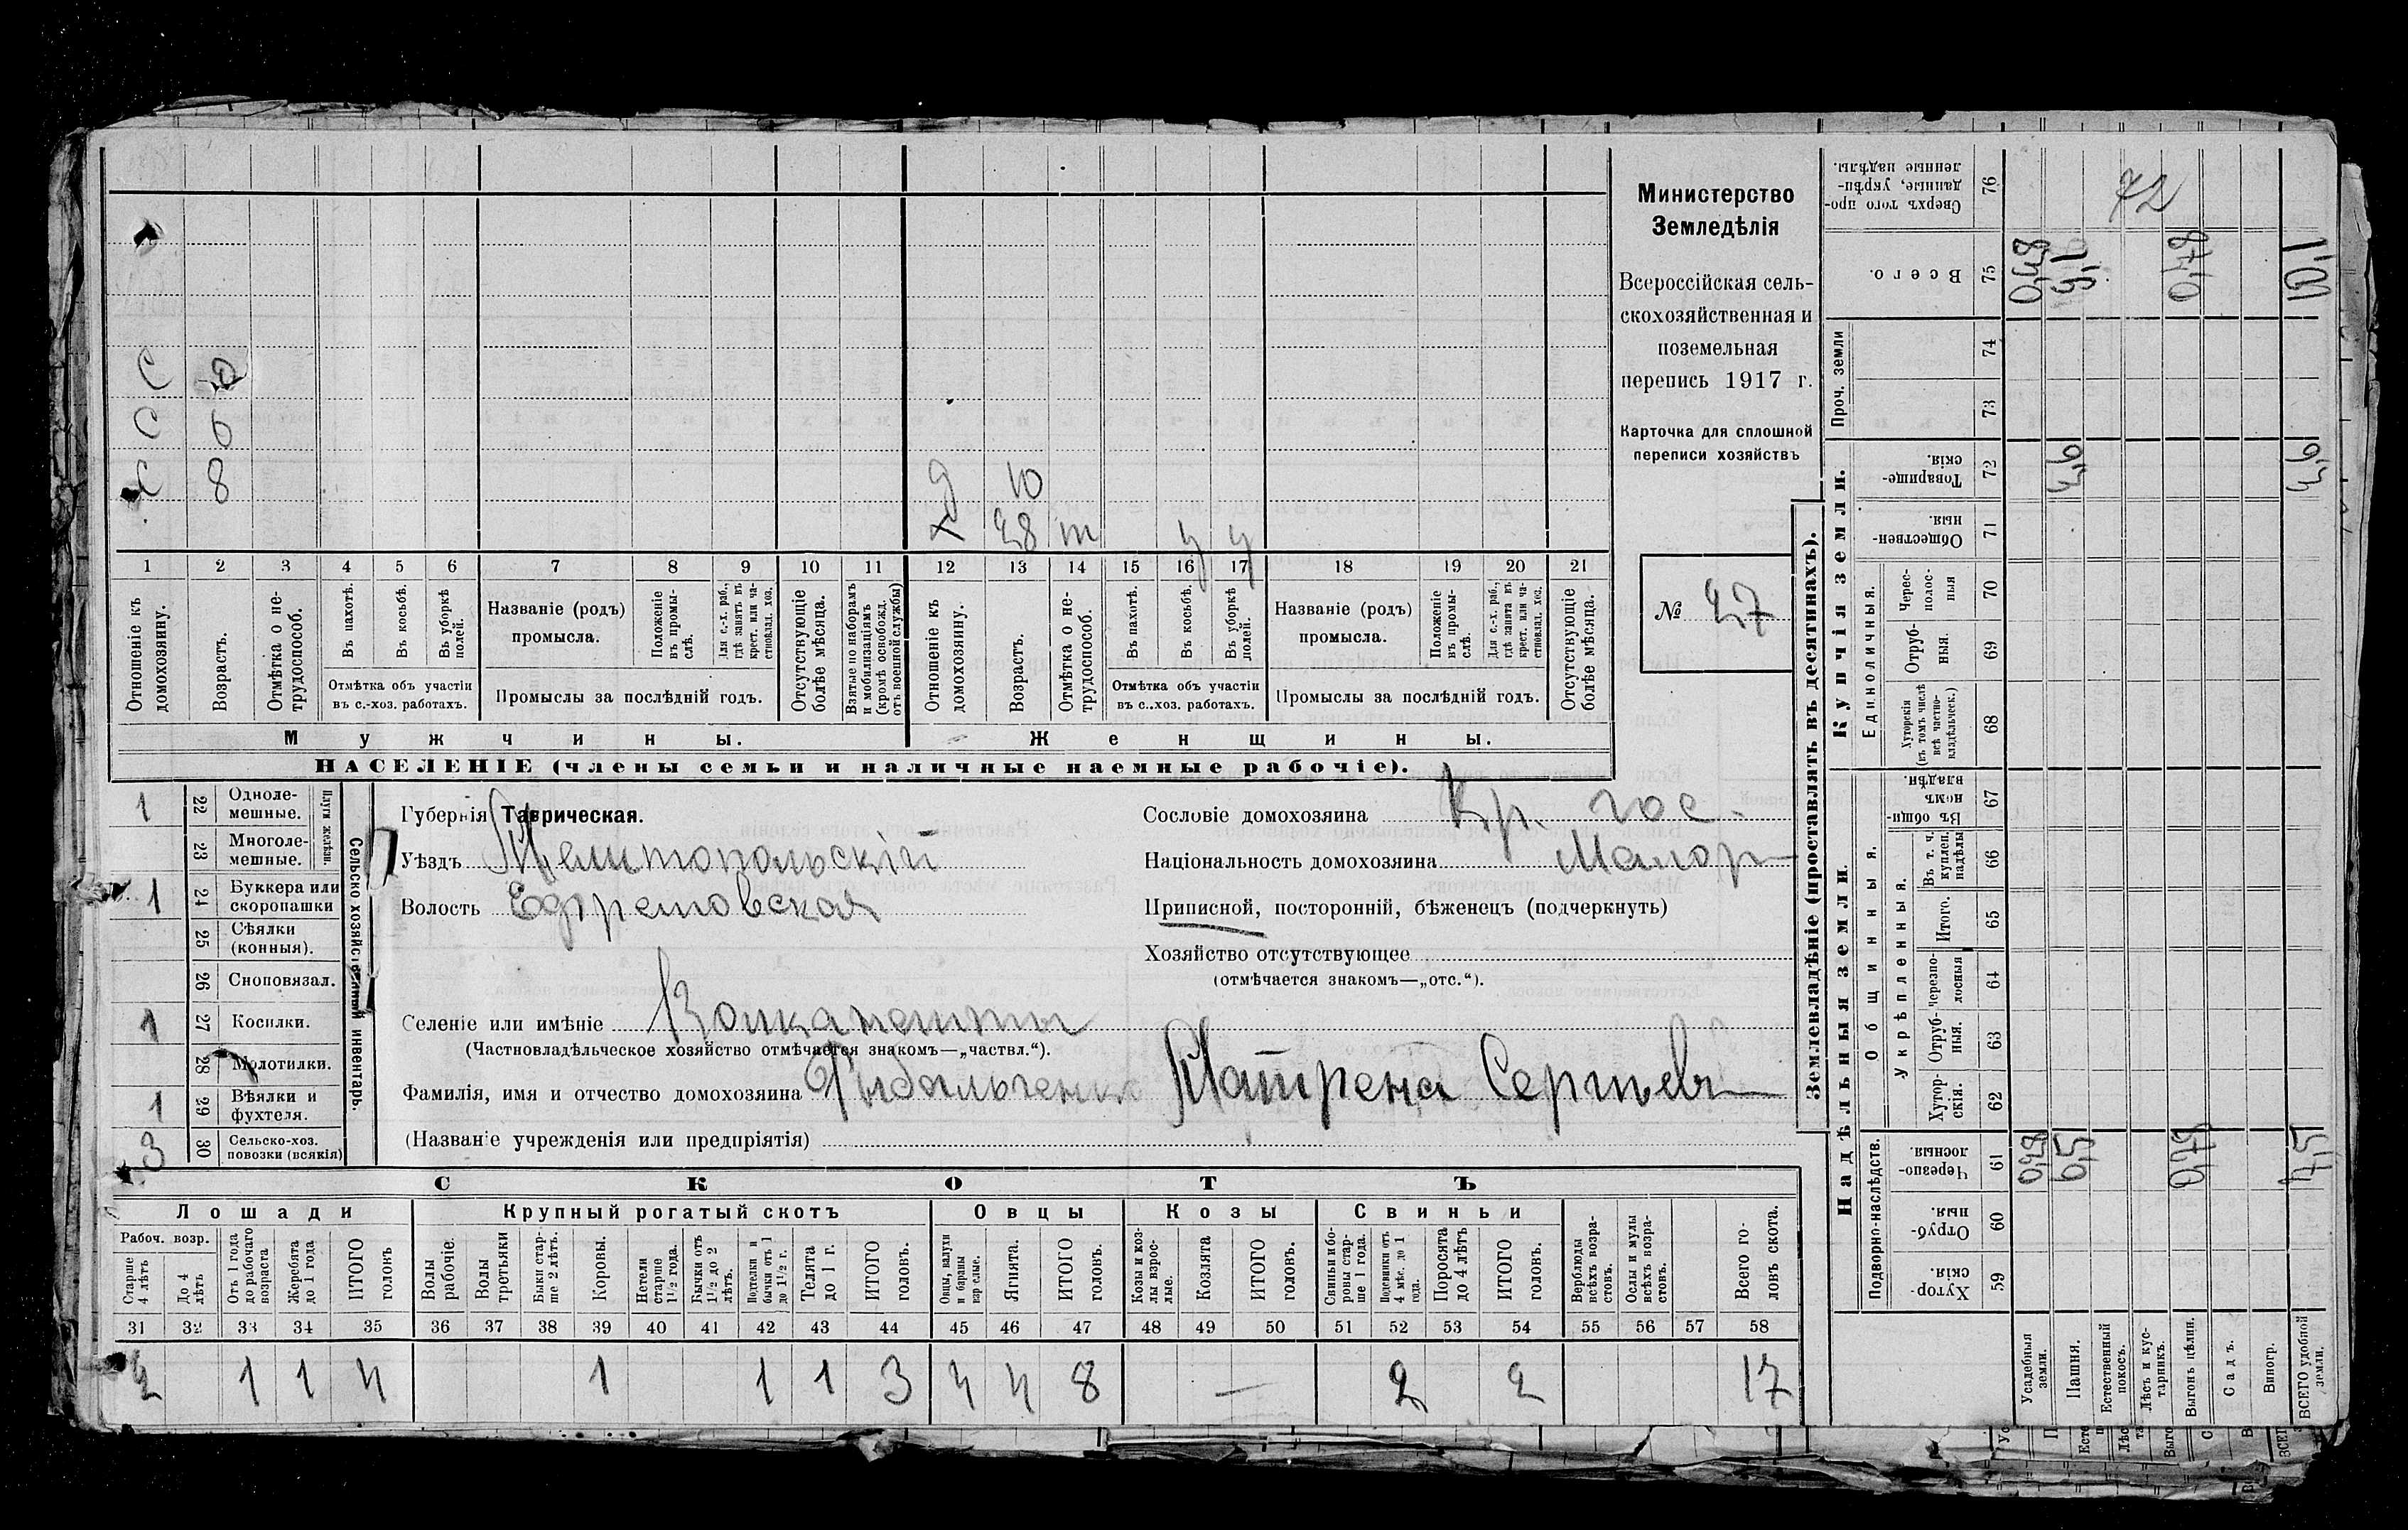 Министерство
Земледѣлія
Всероссійская сель-
скохозяйственная и
поземельная
перепись 1917 г.
Карточка для сплошной
переписи хозяйствъ
№ 27
С
С 6
С 8
д 10
х 38 т у у
1 2 3 4 5 6 7 8 9 10 11 12 13 14 15 16 17 18 19 20 21
Отношеніе къ домохозяину.
Возрастъ.
Отмѣтка о не-трудоспособ.
Въ пахотѣ.
Въ косьбѣ.
Въ уборкѣ полей.
Отмѣтка объ участіи въ с.-хоз. работахъ.
Названіе (родъ) промысла.
Положеніе въ промы-слѣ.
Для с.-х. раб., гдѣ занятъ въ крест. или ча-стновлад. хоз.
Промыслы за послѣдній годъ.
Отсутствующіе болѣе мѣсяца.
Взятые по наборамъ и мобилизаціямъ (кромѣ освобожд. отъ военной службы)
Отношеніе къ домохозяину.
Возрастъ.
Отмѣтка о не-трудоспособ.
Въ пахотѣ.
Въ косьбѣ.
Въ уборкѣ полей.
Отмѣтка объ участіи въ с.-хоз. работахъ.
Названіе (родъ) промысла.
Положеніе въ промы-слѣ.
Для с.-х. раб., гдѣ занята въ крест. или ча-стновлад. хоз.
Промыслы за послѣдній годъ.
Отсутствующіе болѣе мѣсяца.
Мужчины. Женщины.
НАСЕЛЕНІЕ (члены семьи и наличные наемные рабочіе).
Сельско хозяйственный инвентарь.
Плуги желѣзн.
1 22 Однолемешные.
23 Многолемешные.
1 24 Буккера или скоропашки
25 Сѣялки (конныя).
26 Сноповязал.
1 27 Косилки.
28 Молотилки.
1 29 Вѣялки и фухтеля.
3 30 Сельско-хоз. повозки (всякія)
Губернія Таврическая.
Уѣздъ Мелитопольскій
Волость Ефремовская
Селеніе или имѣніе
(Частновладѣльческое хозяйство отмѣчается знакомъ—„частвл.“).
Фамилія, имя и отчество домохозяина Рыбальченко Матрена Сергѣевн
(Названіе учрежденія или предпріятія)
Сословіе домохозяина Кр. гос.
Національность домохозяина Малор
Приписной, посторонній, бѣженецъ (подчеркнуть)
Хозяйство отсутствующее
(отмѣчается знакомъ—„отс.“).
СКОТЪ
Лошади Крупный рогатый скотъ Овцы Козы Свиньи
Рабоч. возр.
Старше 4 лѣтъ
До 4 лѣтъ
Отъ 1 года до рабочаго возраста
Жеребята до 1 года
ИТОГО головъ
Волы рабочіе.
Волы третьяки
Быки стар-ше 2 лѣтъ.
Коровы.
Нетели старше 1½ года.
Бычки отъ 1½ до 2 лѣтъ.
Подтелки и бычки отъ 1 до 1½ г.
Телята до 1 г.
ИТОГО головъ.
Овцы, валухи и бараны взрослые.
Ягнята.
ИТОГО головъ.
Козы и коз-лы взрос-лые.
Козлята
ИТОГО головъ.
Свиньи и бо-ровы стар-ше 1 года.
Подсвинки отъ 4 мѣс. до 1 года.
Поросята до 4 лѣтъ
ИТОГО головъ.
Верблюды всѣхъ возра-стовъ.
Ослы и мулы всѣхъ возра-стовъ.
Всего го-ловъ скота.
31 32 33 34 35 36 37 38 39 40 41 42 43 44 45 46 47 48 49 50 51 52 53 54 55 56 57 58
2 1 1 4 1 1 1 3 4 4 8 — 2 2 17
Землевладѣніе (проставлять въ десятинахъ).
Купчія земли.
Надѣльныя земли.
Проч. земли
Единоличныя.
Общинныя.
Укрѣпленныя.
Подворно-наслѣдств.
Сверхъ того про-данные, укрѣп-ленные надѣлы. 76 72
Всего. 75 0,48 9,1 0,48 10,1
74
73
Товарище-скія. 72
Обществен-ныя. 71
Черес-полос-ныя 70
Отруб-ныя. 69
Хуторскія (въ томъ числѣ всѣ частно-владѣльческ.) 68
Въ общи-номъ владѣн. 67
Въ т. ч. куплен. надѣлы 66
Итого. 65
Черезпо-лосныя 64
Отруб-ныя. 63
Хутор-скія. 62
Черезпо-лосныя. 61
Отруб-ныя. 60
Хутор-скія. 59
Усадебныя земли.
Пашня.
Естественный покосъ.
Лѣсъ и кус-тарникъ.
Выгонъ цѣлин.
Садъ.
Виногр.
ВСЕГО удобной земли.